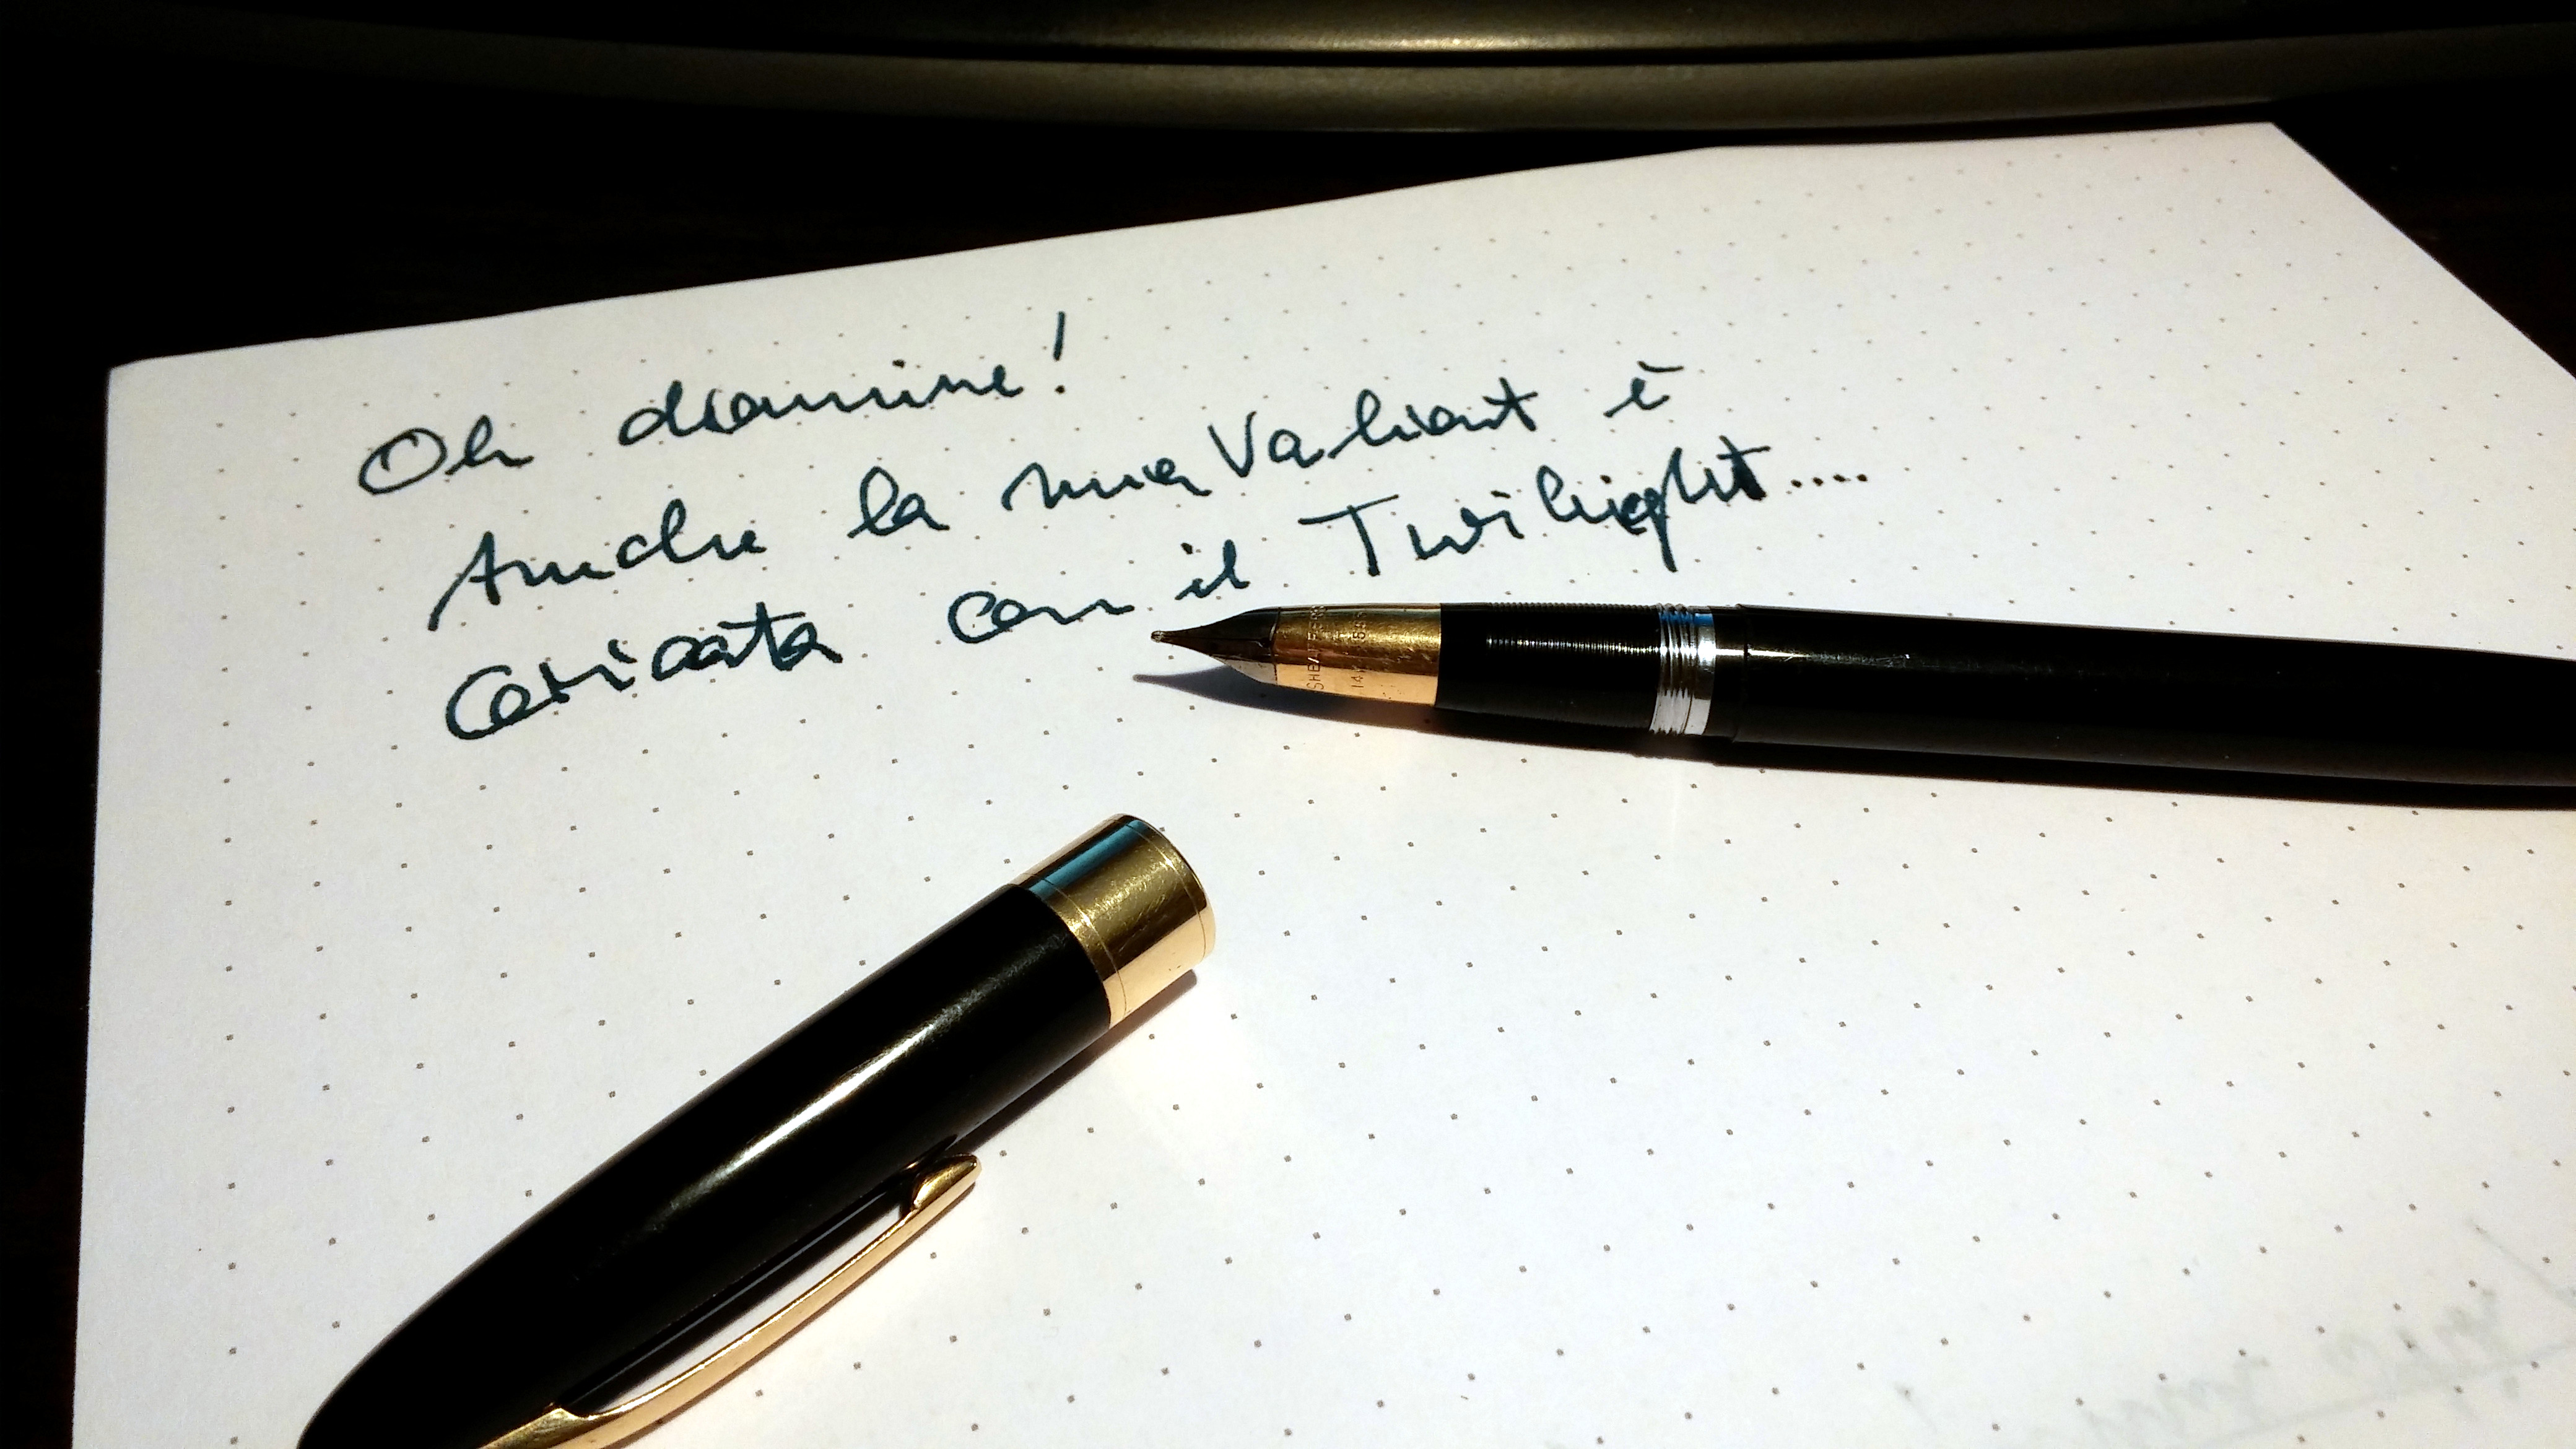 Oh diamine!
Anche la mia Valiant è
caricata con il Twilight....
SHEAFFER'S
14K